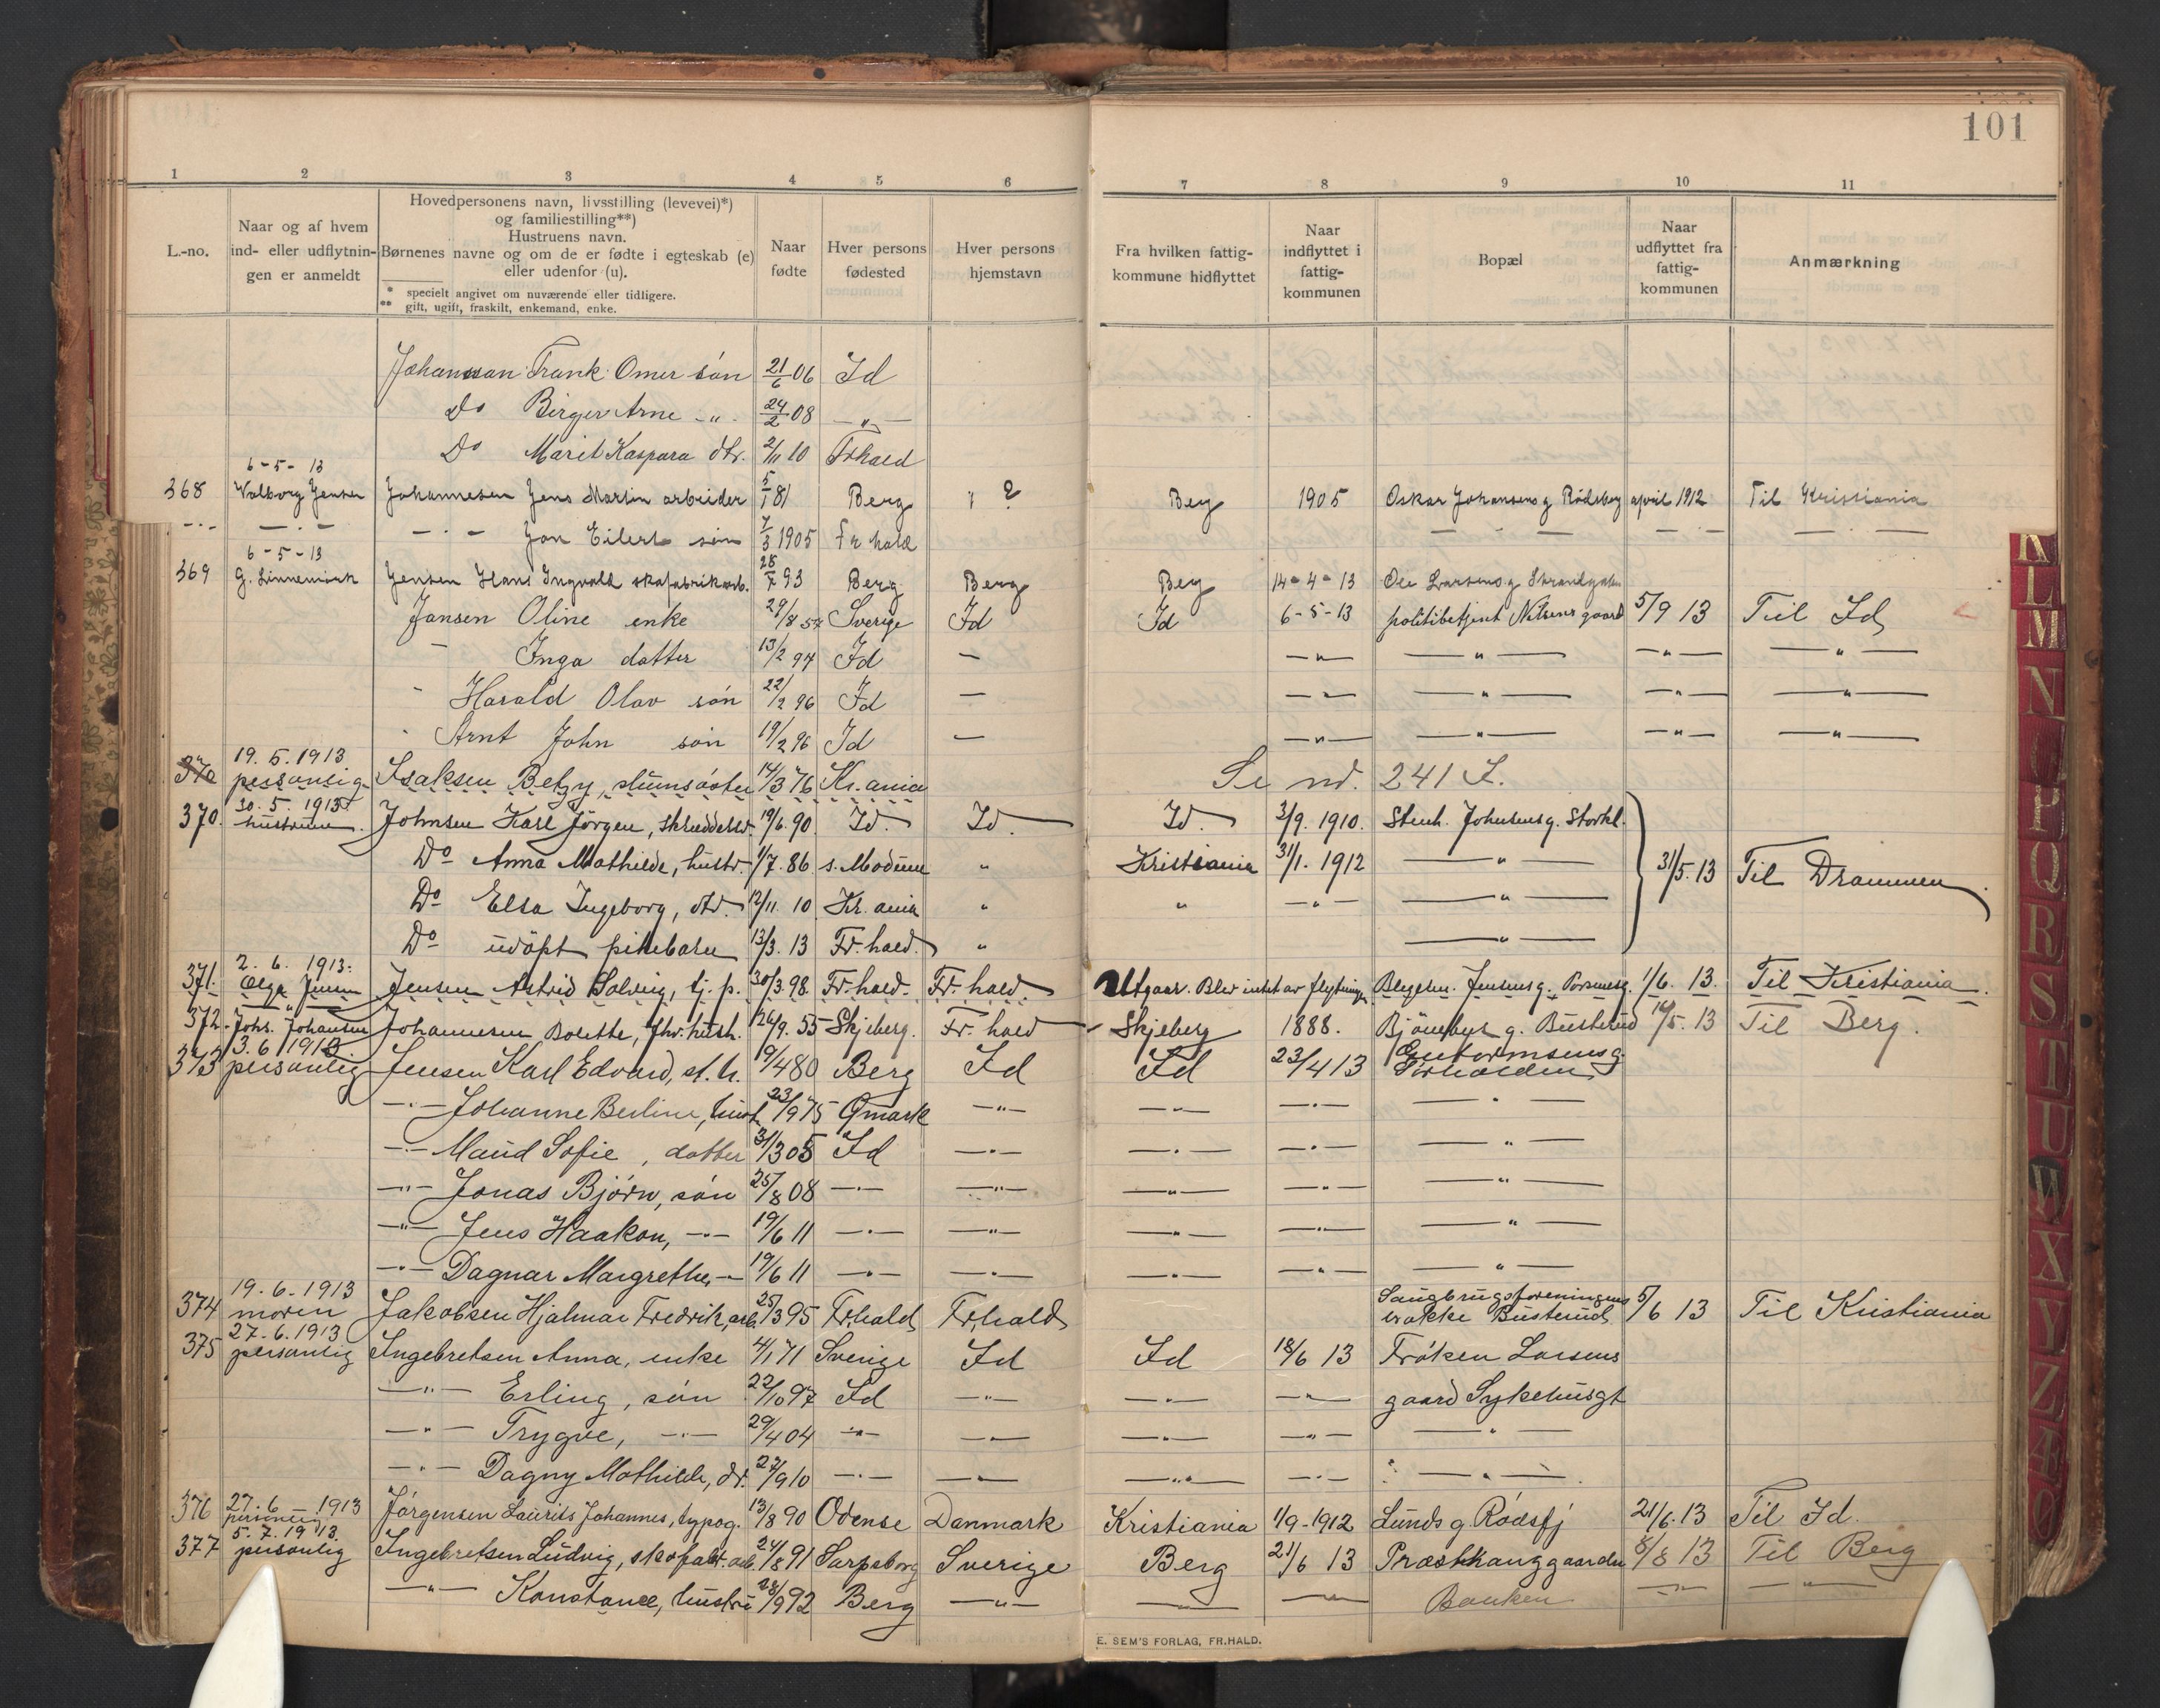 101
1 2 3 4 5 6 7 8 9 10 11
L.-no.
Naar og af hvem
ind- eller udflytnin-
gen er anmeldt
Hovedpersonens navn, livsstilling (levevei)*)
og familiestilling**)
Hustruens navn.
Børnenes navne og om de er fødte i egteskab (e)
eller udenfor (u).
* specielt angivet om nuværende eller tidligere.
** gift, ugift, fraskilt, enkemand, enke.
Naar
fødte
Hver persons
fødested
Hver persons
hjemstavn
Fra hvilken fattig-
kommune hidflyttet
Naar
indflyttet i
fattig-
kommunen
Bopæl
Naar
udflyttet fra
fattig-
kommunen
Anmærkning
Johansson Frank Omer søn 21/6 06 Id
Do Birger Arne -„- 24/2 08 -„-
Do Marit Kaspara dtr. 2/11 10 Frhald
6-5-13
368 Valborg Jensen Johannesen Jens Martin arbeider 5/1 81 Berg ? Berg 1905 Oskar Johansens g Rødsberg april 1912 Til Kristiania
-„- -„- -„- Jon Eilert søn 7/3 1905 Frhald - - - -„- -„-
6-5-13
369 G. Linnemork Jensen Hans Ingvald skofabrikarb. 28/7 93 Berg Berg Berg 14-4-13 Ole Larsens g Strandgaten
Jansen Oline enke 29/8 57 Sverige Id Id 6-5-13 politibetjent Nilsens gaard 5/9 13 Til Id
- Inga datter 13/2 94 Id - -„- -„- -„- -„-
- Harald Olav søn 22/2 96 Id - -„- -„- -„- -„-
- Arnt John søn 19/2 96 Id - -„- -„- -„- -„-
19.5.1913
370 personlig Isaksen Betzy, stuesøster 14/3 76 Kr.ania Se no. 241 I.
30.5.1913
370. hustruen. Johnsen Karl Jørgen, skreddersv. 19/6.90. Id. Id. Id. 3/9.1910. Stenh. Johnsens g. Storkl.
Do Anna Mathilde, hustr. 1/7.86. s. Modum „ Kristiania 31/1.1912 -„- 31/5.13 Til Drammen
Do Elsa Ingeborg, dtr. 12/11.10 Kr.ania „ „ -„- -„-
Do udøpt pikebarn 13/3.13 Fr.hald. „ -„-
2.6.1913.
371. Olga Jensen Jensen Astrid Solveig, tj.p. 30/3.98. Fr.hald. Fr.hald. Utgaar. Blev intet av flytningen Blegesn. Jensens g. Porsnesg. 1/6.13. Til Kristiania.
372. Johs. Johansen Johannesen Bolette, fhv. hush. 26/9.55 Skjeberg. Fr.hald Skjeberg 1888. Bjørnebys g. Busterud 16/5.13 Til Berg.
3.6.1913
373 personlig Jensen Karl Edvard, st.h. 19/4 80 Berg Id Id 23/4 13 Guttormsens g.
Sørhalden
-„- Johanne Berline, hust. 23/9 75 Ømark -„- -„- -„- -„-
-„- Maud Sofie, datter 31/3 05 Id -„- -„- -„- -„-
-„- Jonas Bjørn, søn 25/8 08 -„- -„- -„- -„- -„-
-„- Jens Haakon, -„- 19/6 11 -„- -„- -„- -„- -„-
-„- Dagnar Margrethe, - 19/6 11 -„- -„- -„- -„- -„-
19.6.1913 Saugbrugsforeningens
374 moren Jakobsen Hjalmar Fredrik, arb. 25/3 95 Fr.hald Fr.hald brakke Busterud 5/6 13 Til Kristiania
27.6.1913
375 personlig Ingebretsen Anna, enke 4/1 71 Sverige Id Id 18/6 13 Frøken Larsens
-„- Erling, søn 22/10 97 Id -„- -„- -„- gaard Sykehusgt
-„- Trygve, -„- 29/4 04 -„- -„- -„- -„- -„-
-„- Dagny Mathilde, dt. 27/9 10 -„- -„- -„- -„- -„-
376 27.6.1913
personlig Jørgensen Laurits Johannes, typog. 13/8 90 Odense Danmark Kristiania 1/9-1912 Lunds g. Rødsfj 21/6.13 Til Id.
5.7.1913
377 personlig Ingebretsen Ludvig, skofabr.arb. 24/8 91 Sarpsborg Sverige Berg 21/6 13 Præsthaug gaarden 8/8 13 Til Berg
-„- Konstance, hustru 28/9 92 Berg -„- -„- -„- Banken -„- -„-
E. SEM'S FORLAG, FR.HALD.
K
L
M
N
P
Q
R
S
T
U
W
X
Y
Z
Æ
Ø